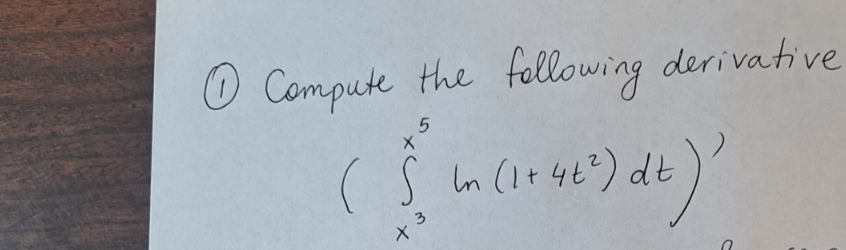 ① Compute the following derivative
( ∫_{x^3}^{x^5} ln (1+4t²) dt )'